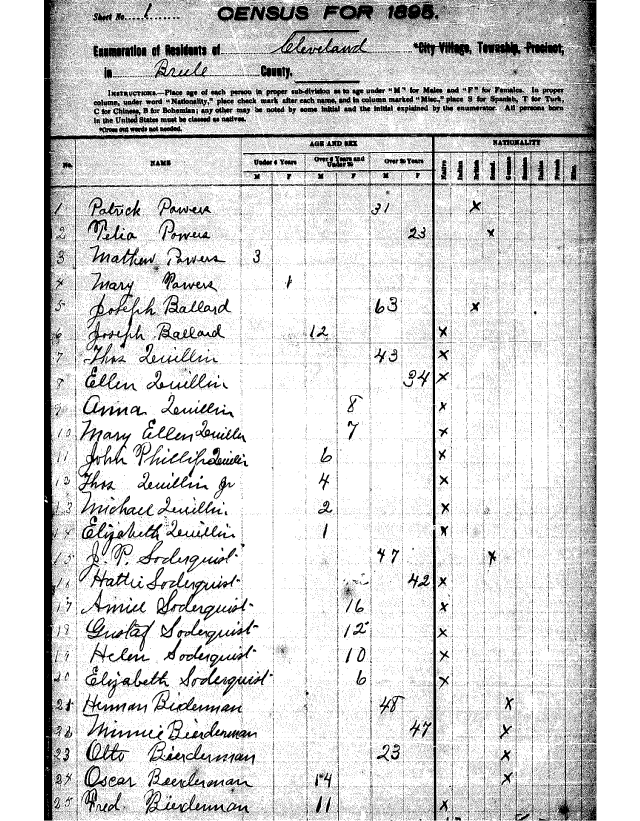 Sheet No. 1
CENSUS FOR 1895.
Enumeration of Residents of Cleveland *City Village, Township, Precinct,
in Brule County.
INSTRUCTIONS.—Place age of each person in proper sub-division as to age under "M" for Males and "F" for Females. In proper
column, under word "Nationality," place check mark after each name, and in column marked "Misc.," place S for Spanish, T for Turk,
C for Chinese, B for Bohemian; any other may be noted by some initial and the initial explained by the enumerator. All persons born
in the United States must be classed as natives.
*Cross out words not needed.
No. NAME AGE AND SEX NATIONALITY
Over 20 Years
M F M F M F
1 Patrick Powers 31 x
2 Powers 23 x
3 Mathew Powers 3
4 Mary Powers 1
5 Joseph Ballard 63 x
6 Joseph Ballard 12 x
7 Thos Quillin 43 x
8 Ellen Quillin 34 x
9 Anna Quillin 8 x
10 Mary Ellen Quillin 7 x
11 John Phillip Quillin 6 x
12 Thos Quillin Jr 4 x
13 Michael Quillin 2 x
14 Elizabeth Quillin 1 x
15 J. P. Soderquist 47 x
16 Hattie Soderquist 42 x
17 Amiel Soderquist 16 x
18 Gustaf Soderquist 12 x
19 Helen Soderquist 10 x
20 Elizabeth Soderquist 6 x
21 Herman Biederman 48 x
22 Minnie Bierderman 47 x
23 Otto Bierderman 23 x
24 Oscar Beederman 14 x
25 Fred Biederman 11 x